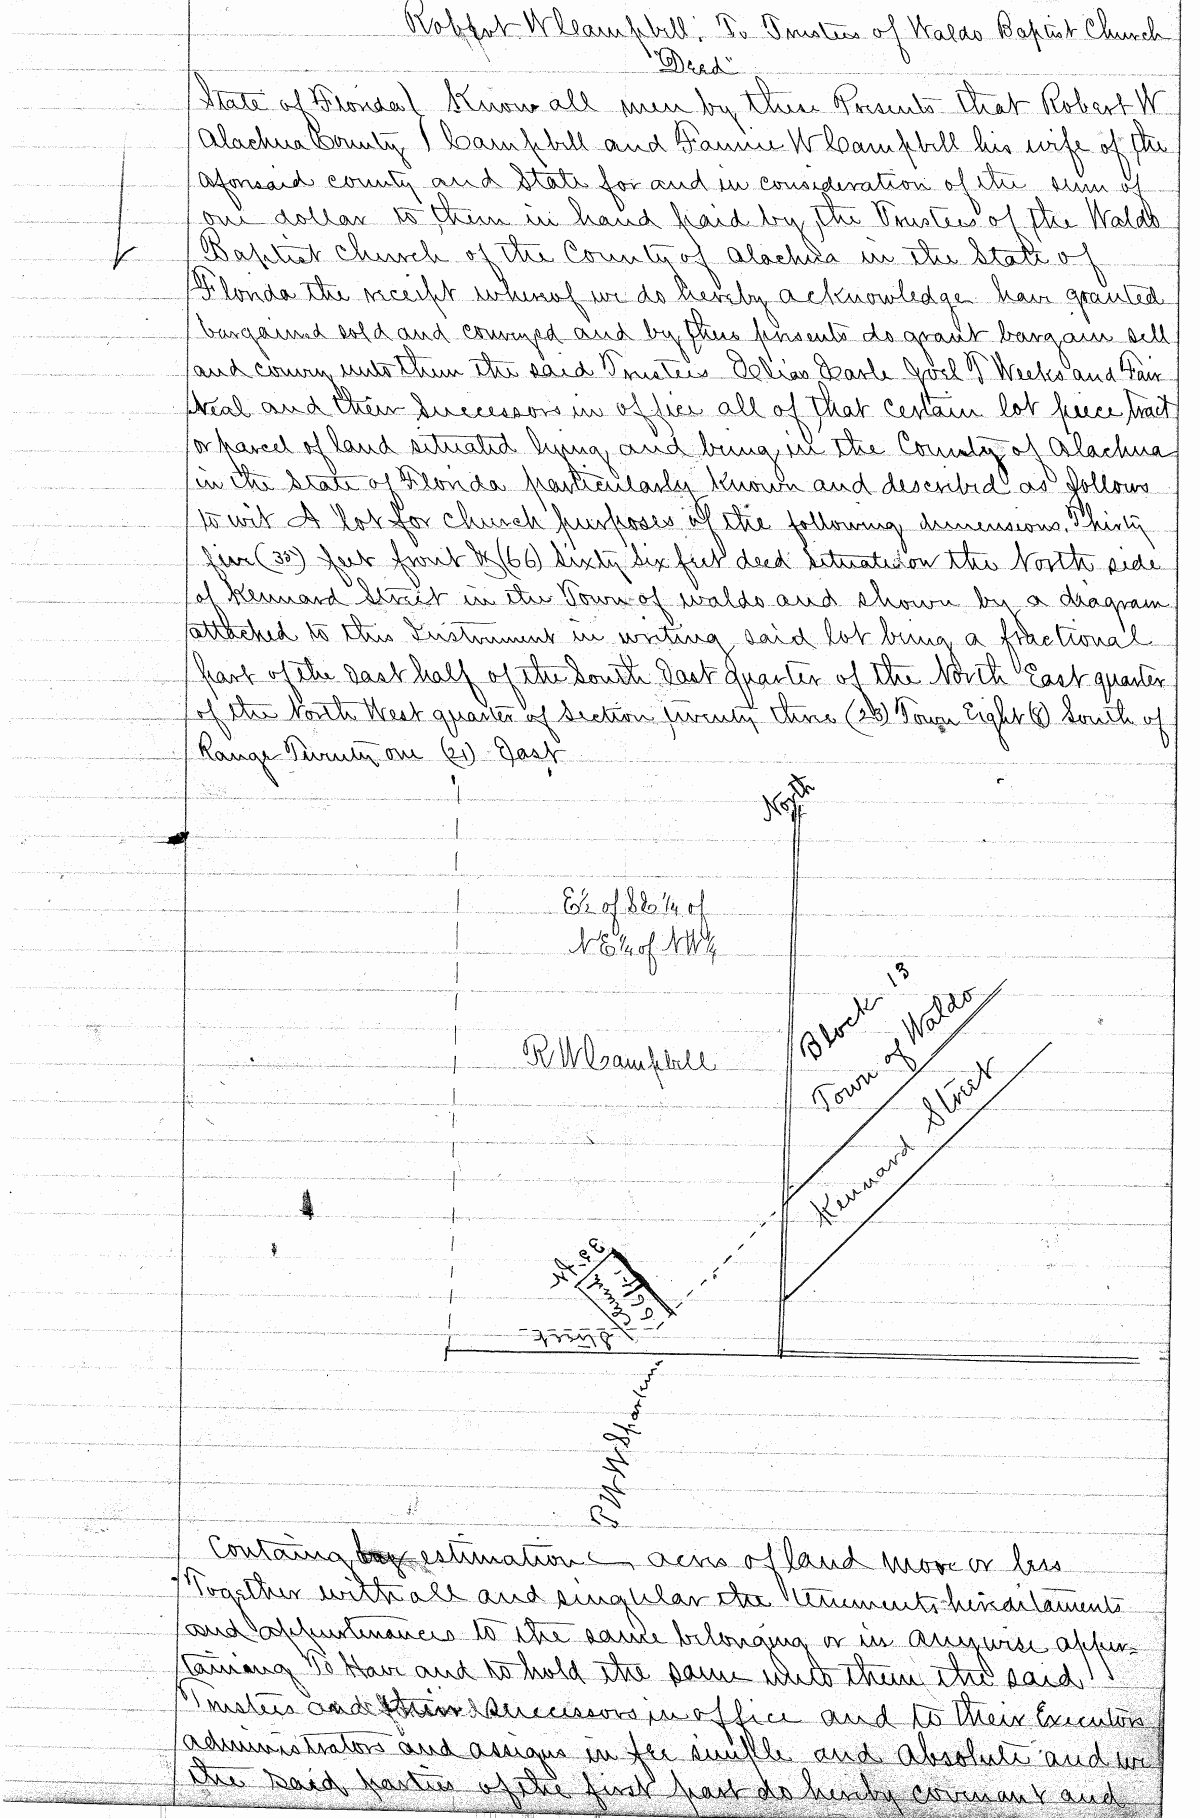 Robert W Campbell; To Trustees of Waldo Baptist Church
"Deed"
State of Florida ( Know all men by these Presents that Robert W
Alachua County ) Campbell and Fannie W Campbell his wife of the
aforesaid county and State for and in consideration of the sum of
one dollar to them in hand paid by the Trustees of the Waldo
Baptist Church of the County of Alachua in the State of
Florida the receipt whereof we do hereby acknowledge have granted
bargained sold and conveyed and by these presents do grant bargain sell
and convey unto them the said Trustees Elias Earle Joel T Weeks and Fair
Neal and their Successors in office all of that certain lot piece tract
or parcel of land situated lying and being in the County of Alachua
in the State of Florida particularly known and described as follows
to wit A lot for church purposes of the following dimensions. Thirty
five (35) feet front by (66) Sixty Six feet deed situate on the North side
of Kennard Street in the Town of waldo and shown by a diagram
attached to this Instrument in writing said lot being a fractional
part of the East half of the South East quarter of the North East quarter
of the North West quarter of Section twenty three (23) Town Eight (8) South of
Range Twenty one (21) East
North
E½ of SE ¼ of
NE ¼ of NW ¼
Block 13
Town of Waldo
R W Campbell
Kennard Street
35 ft
Church
66 ft
Street
R W W Sparkman
Containg by estimation acres of land more or less
Together with all and singular the tenements hereditaments
and appurtenances to the same belonging or in anywise apper=
taining To Have and to hold the same unto them the said
Trustees and their Successors in office and to their Executors
administrators and assigns in fee simple and absolute and we
the said parties of the first part do hereby covenant and